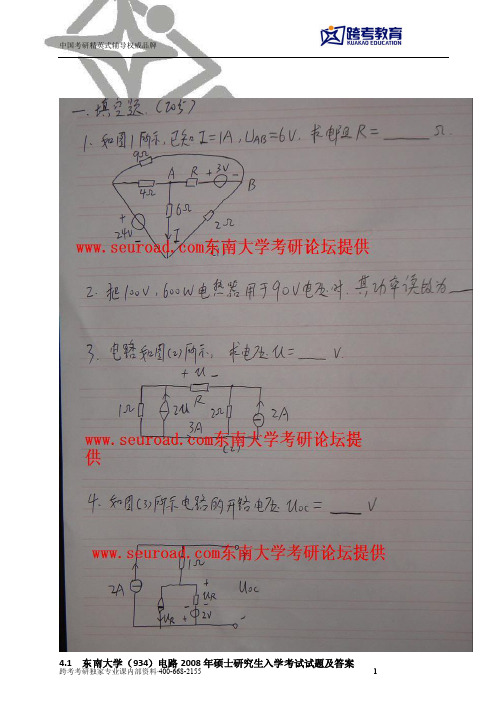 中国考研精英式辅导权威品牌
跨考教育
KUAKAO EDUCATION
一. 填空题. (20分)
1. 如图1所示, 已知 I=1A, UAB=6V. 求电阻 R= ____ Ω.
9Ω
A R + 3V - B
4Ω
6Ω
2Ω
+ 24V -
I
www.seuroad.com东南大学考研论坛提供
2. 把100V, 600W电热器用于90V电压时. 其功率误做为 __
3. 电路如图(2)所示, 求电压 U= ___ V.
+ U -
R
1Ω 2U 2Ω 2A
3A
www.seuroad.com东南大学考研论坛提
供
(2)
4. 如图(3)所示电路的开路电压 Uoc = ___ V
www.seuroad.com东南大学考研论坛提供
+
1Ω
2A
+
UR
-
UR
+ 2V
-
Uoc
-
4.1 东南大学（934）电路 2008 年硕士研究生入学考试试题及答案
跨考考研独家专业课内部资料 400-668-2155 1